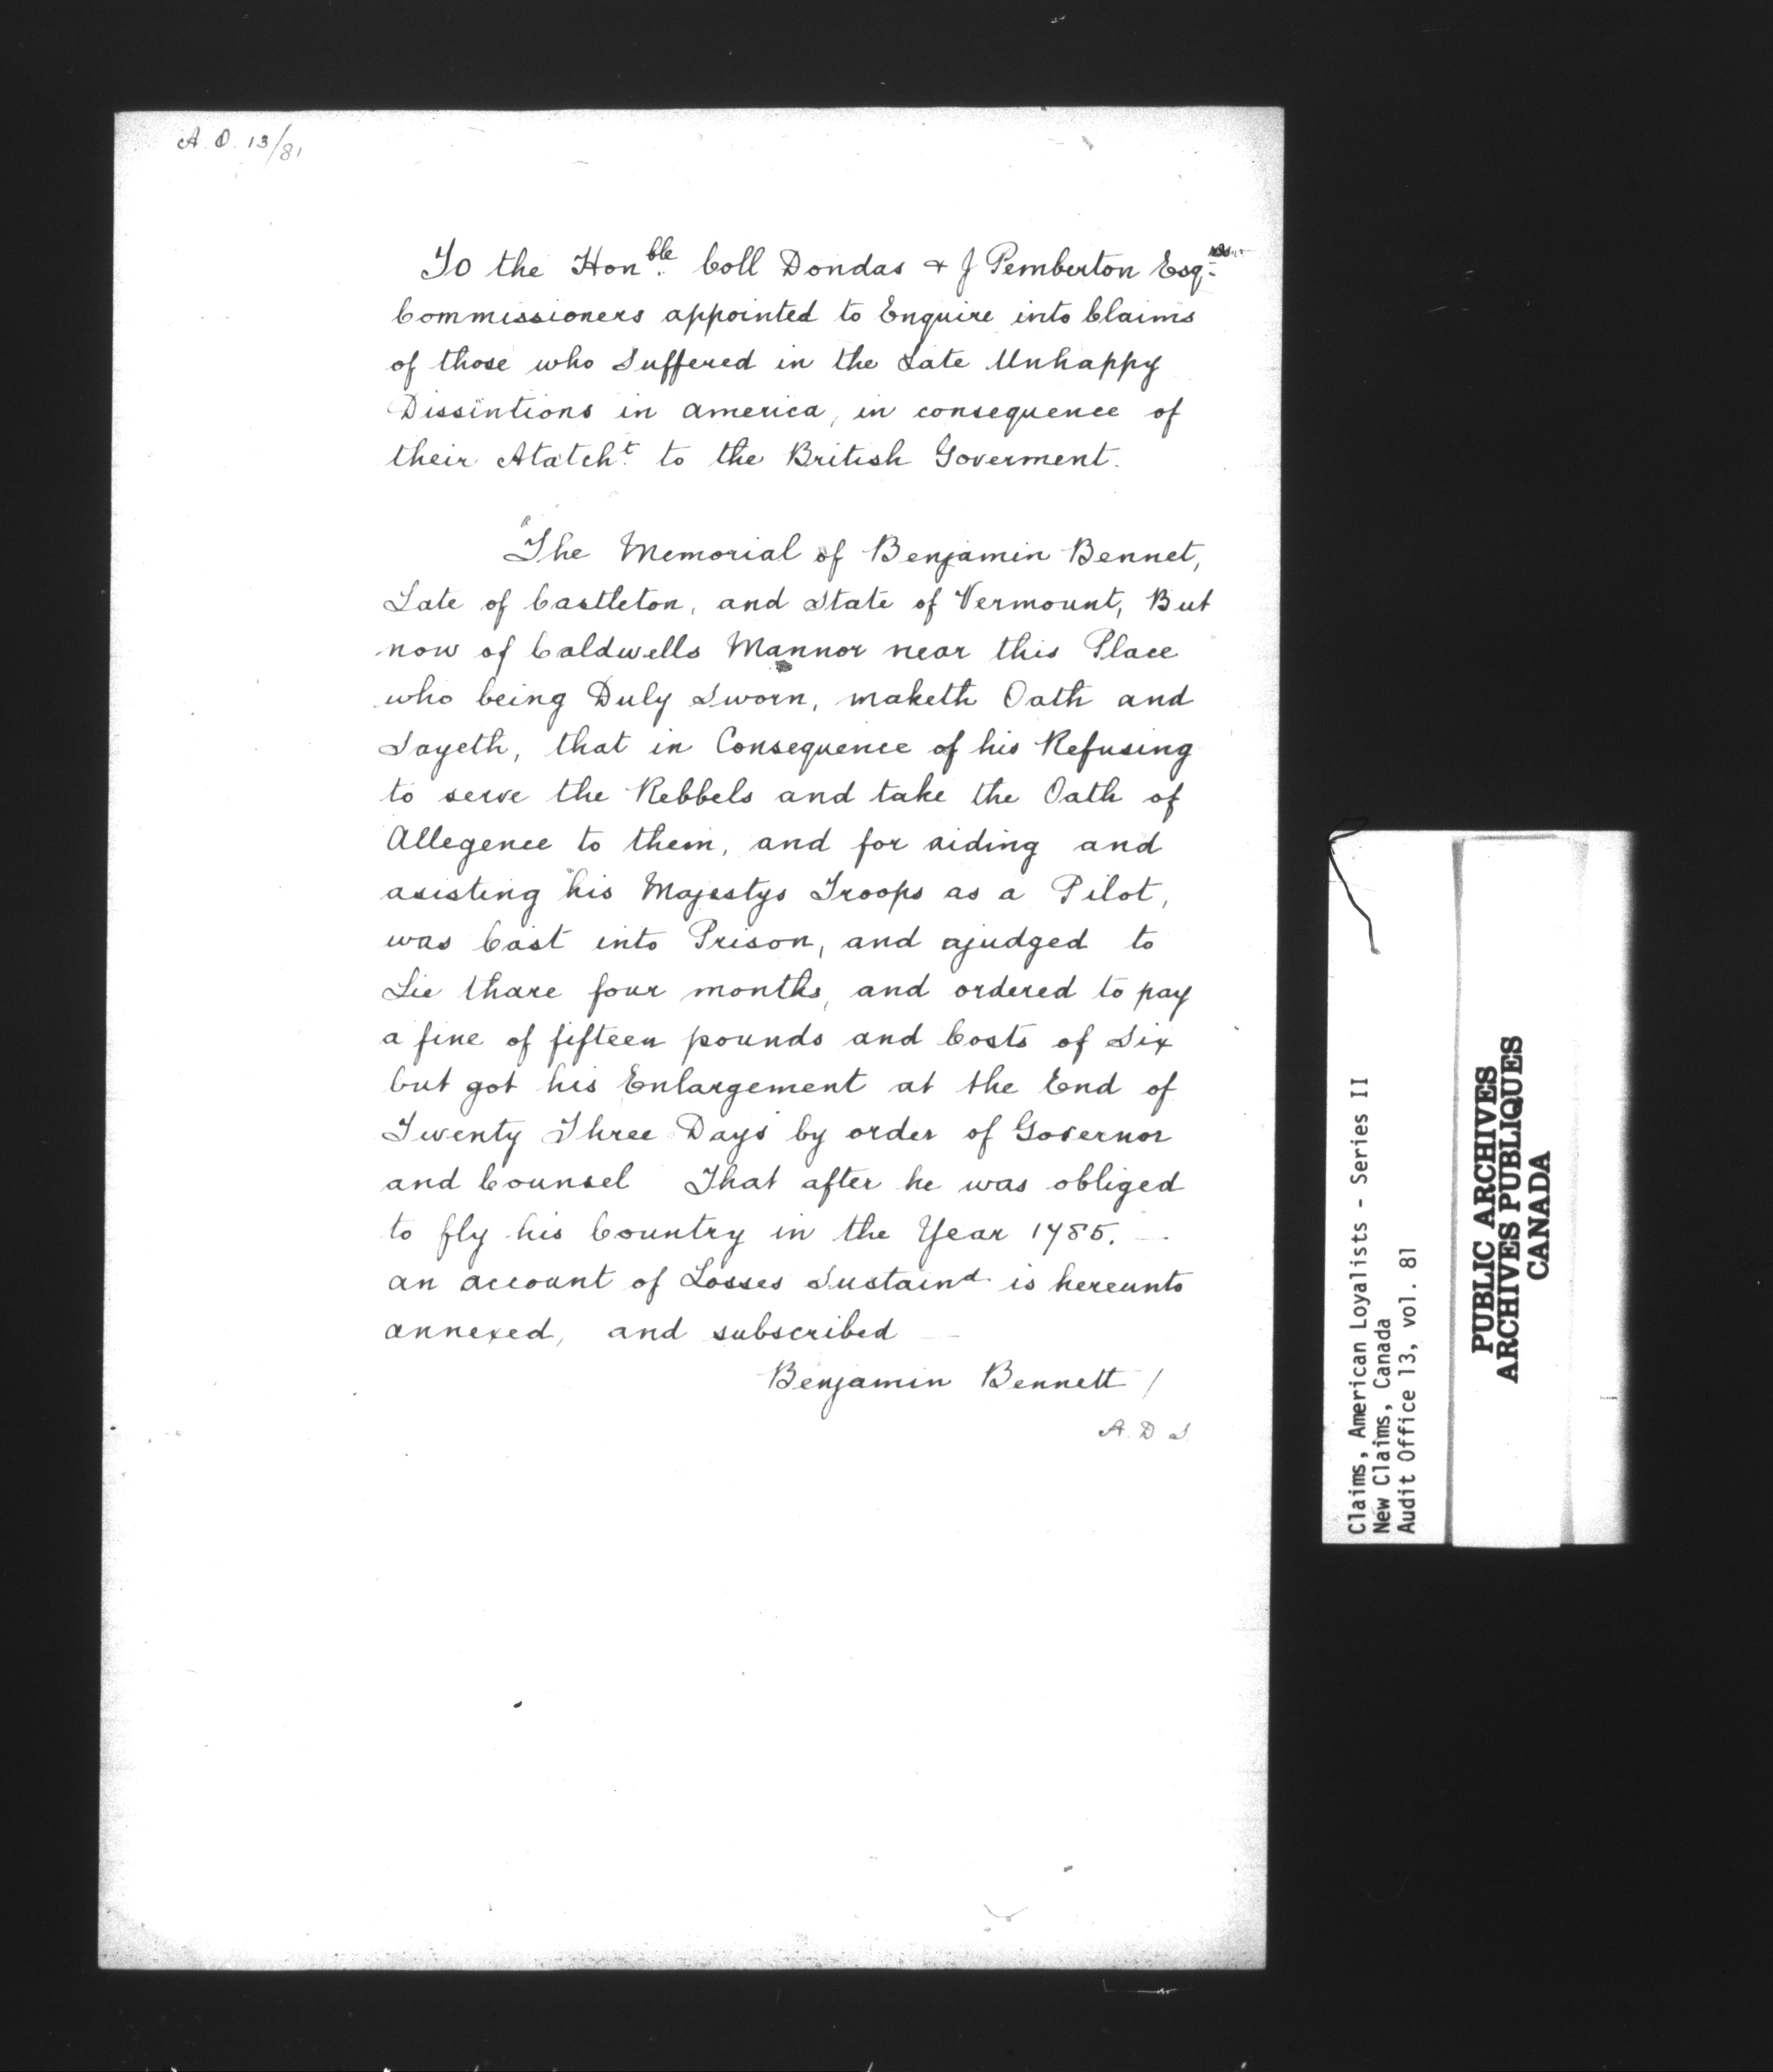 A. O. 13/81
To the Honble. Coll Dondas & J Pemberton Esqrs
Commissioners appointed to Enquire into Claims
of those who Suffered in the Late Unhappy
Dissintions in america, in consequence of
their Atatcht. to the British Goverment.
The Memorial of Benjamin Bennet,
Late of Castleton, and State of Vermount, But
now of Caldwells Mannor near this Place
who being Duly Sworn, maketh Oath and
Sayeth, that in Consequence of his Refusing
to serve the Rebbels and take the Oath of
Allegence to them, and for aiding and
asisting his Majestys Troops as a Pilot,
was Cast into Prison, and ajudged to
Lie thare four months, and ordered to pay
a fine of fifteen pounds and Costs of Six
but got his Enlargement at the End of
Twenty Three Days by order of Governor
and Counsel That after he was obliged
to fly his Country in the Year 1785.
an account of Losses Sustaind. is hereunto
annexed, and subscribed
Benjamin Bennett /
A. D. S.
Claims, American Loyalists - Series II
New Claims, Canada
Audit Office 13, vol. 81
PUBLIC ARCHIVES
ARCHIVES PUBLIQUES
CANADA